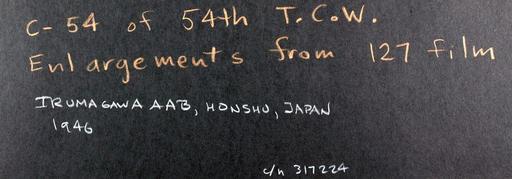 C-54 of 54th T.C.W.
Enlargements from 127 film
IRUMAGAWA AAB, HONSHU, JAPAN
1946
c/n 317224